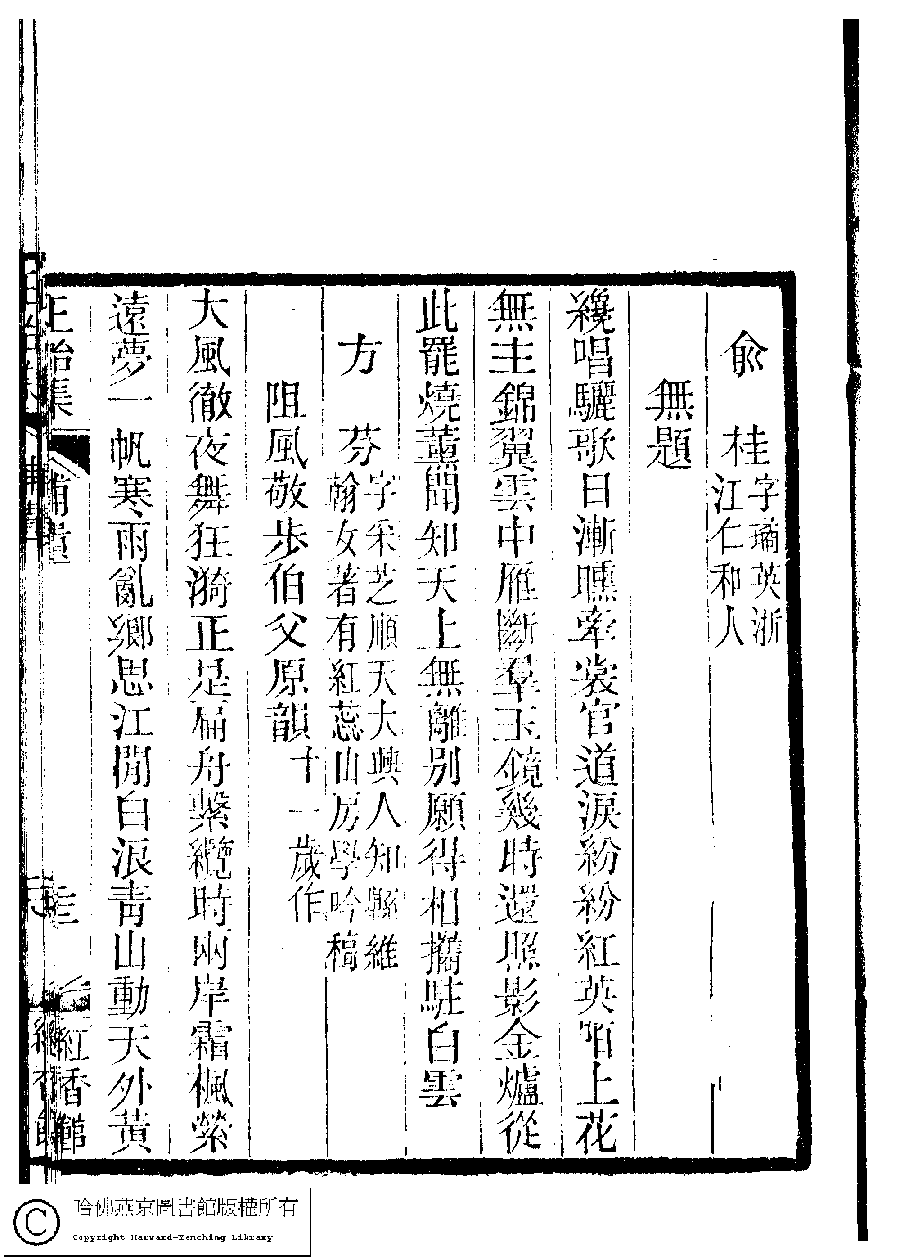 俞　桂字璚英浙江仁和人
無題
纔唱驪歌日漸曛牽裳官道淚紛紛紅英陌上花
無主錦翼雲中雁斷羣玉鏡幾時還照影金爐從
此罷燒薰聞知天上無離別願得相攜駐白雲
方　芬字采芝順天大興人知縣維翰女著有紅蕊山房學吟稿
阻風敬步伯父原韻十一歲作
大風徹夜舞狂漪正是扁舟繫纜時兩岸霜楓縈
遠夢一帆寒雨亂鄉思江閒白浪青山動天外黃
正始集
補遺
紅香館
哈佛燕京圖書館版權所有
Copyright Harvard-Yenching Library